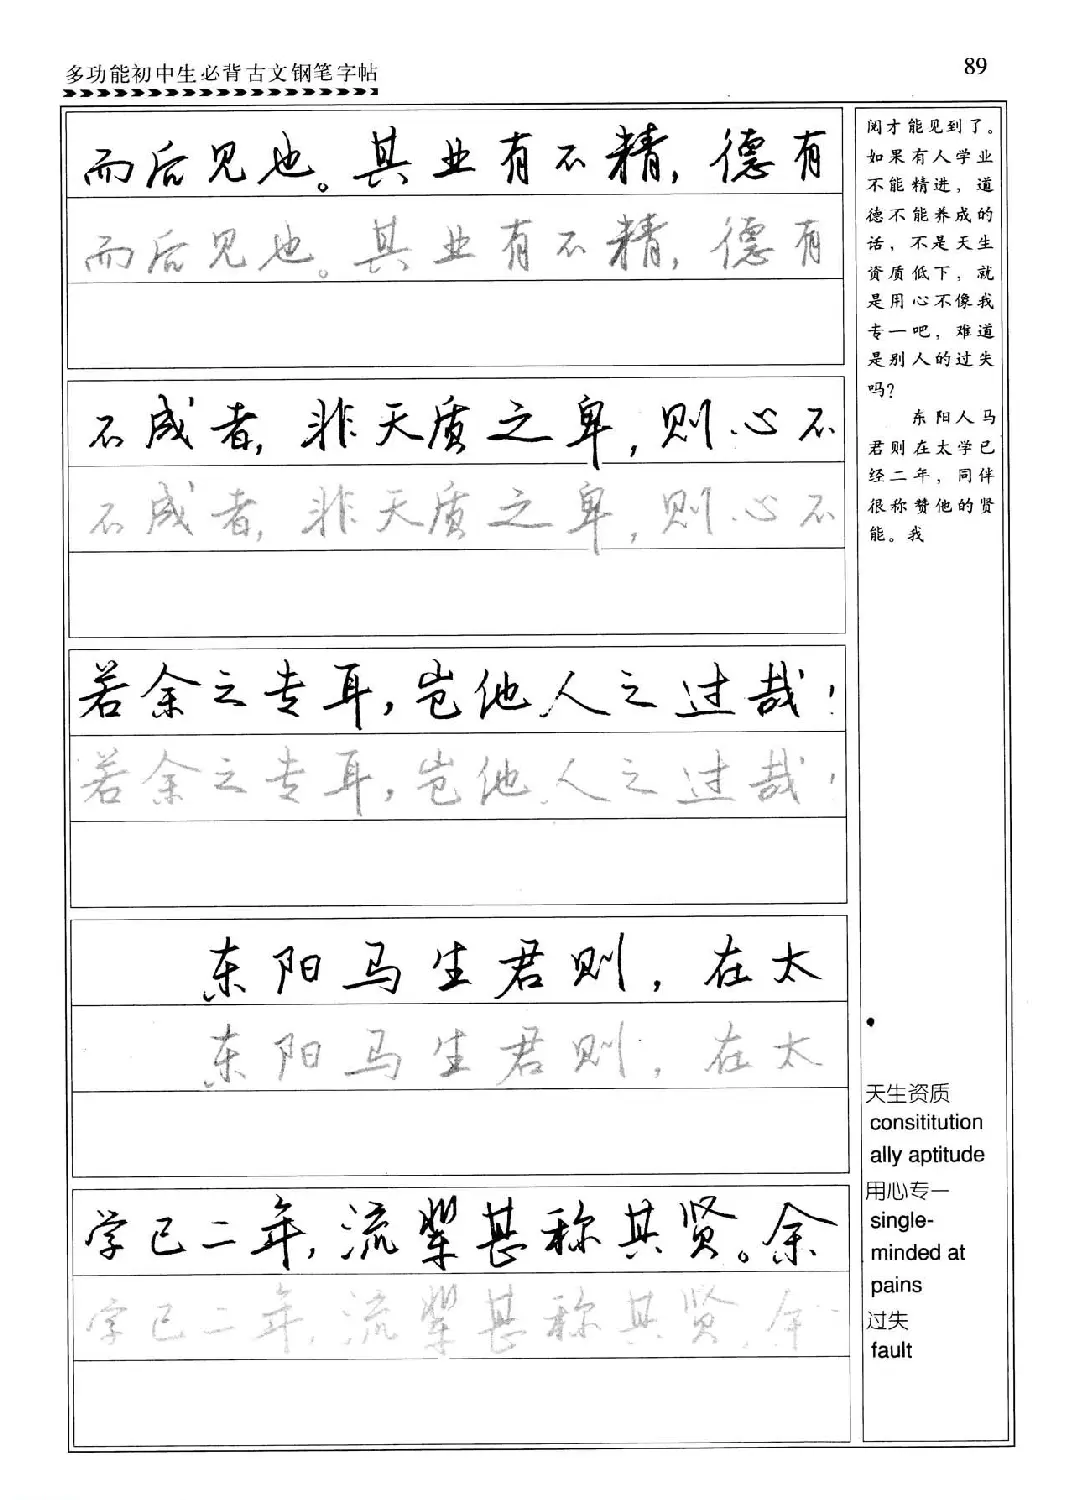 多功能初中生必背古文钢笔字帖
89
而后见也。其业有不精,德有
而后见也。其业有不精,德有
不成者,非天质之卑,则心不
不成者,非天质之卑,则心不
若余之专耳,岂他人之过哉!
若余之专耳,岂他人之过哉!
东阳马生君则,在太
东阳马生君则,在太
学已二年,流辈甚称其贤。余
学已二年,流辈甚称其贤。余
阅才能见到了。
如果有人学业
不能精进,道
德不能养成的
话,不是天生
资质低下,就
是用心不像我
专一吧,难道
是别人的过失
吗?
东阳人马
君则在太学已
经二年,同伴
很称赞他的贤
能。我
天生资质
consititution
ally aptitude
用心专一
single-
minded at
pains
过失
fault